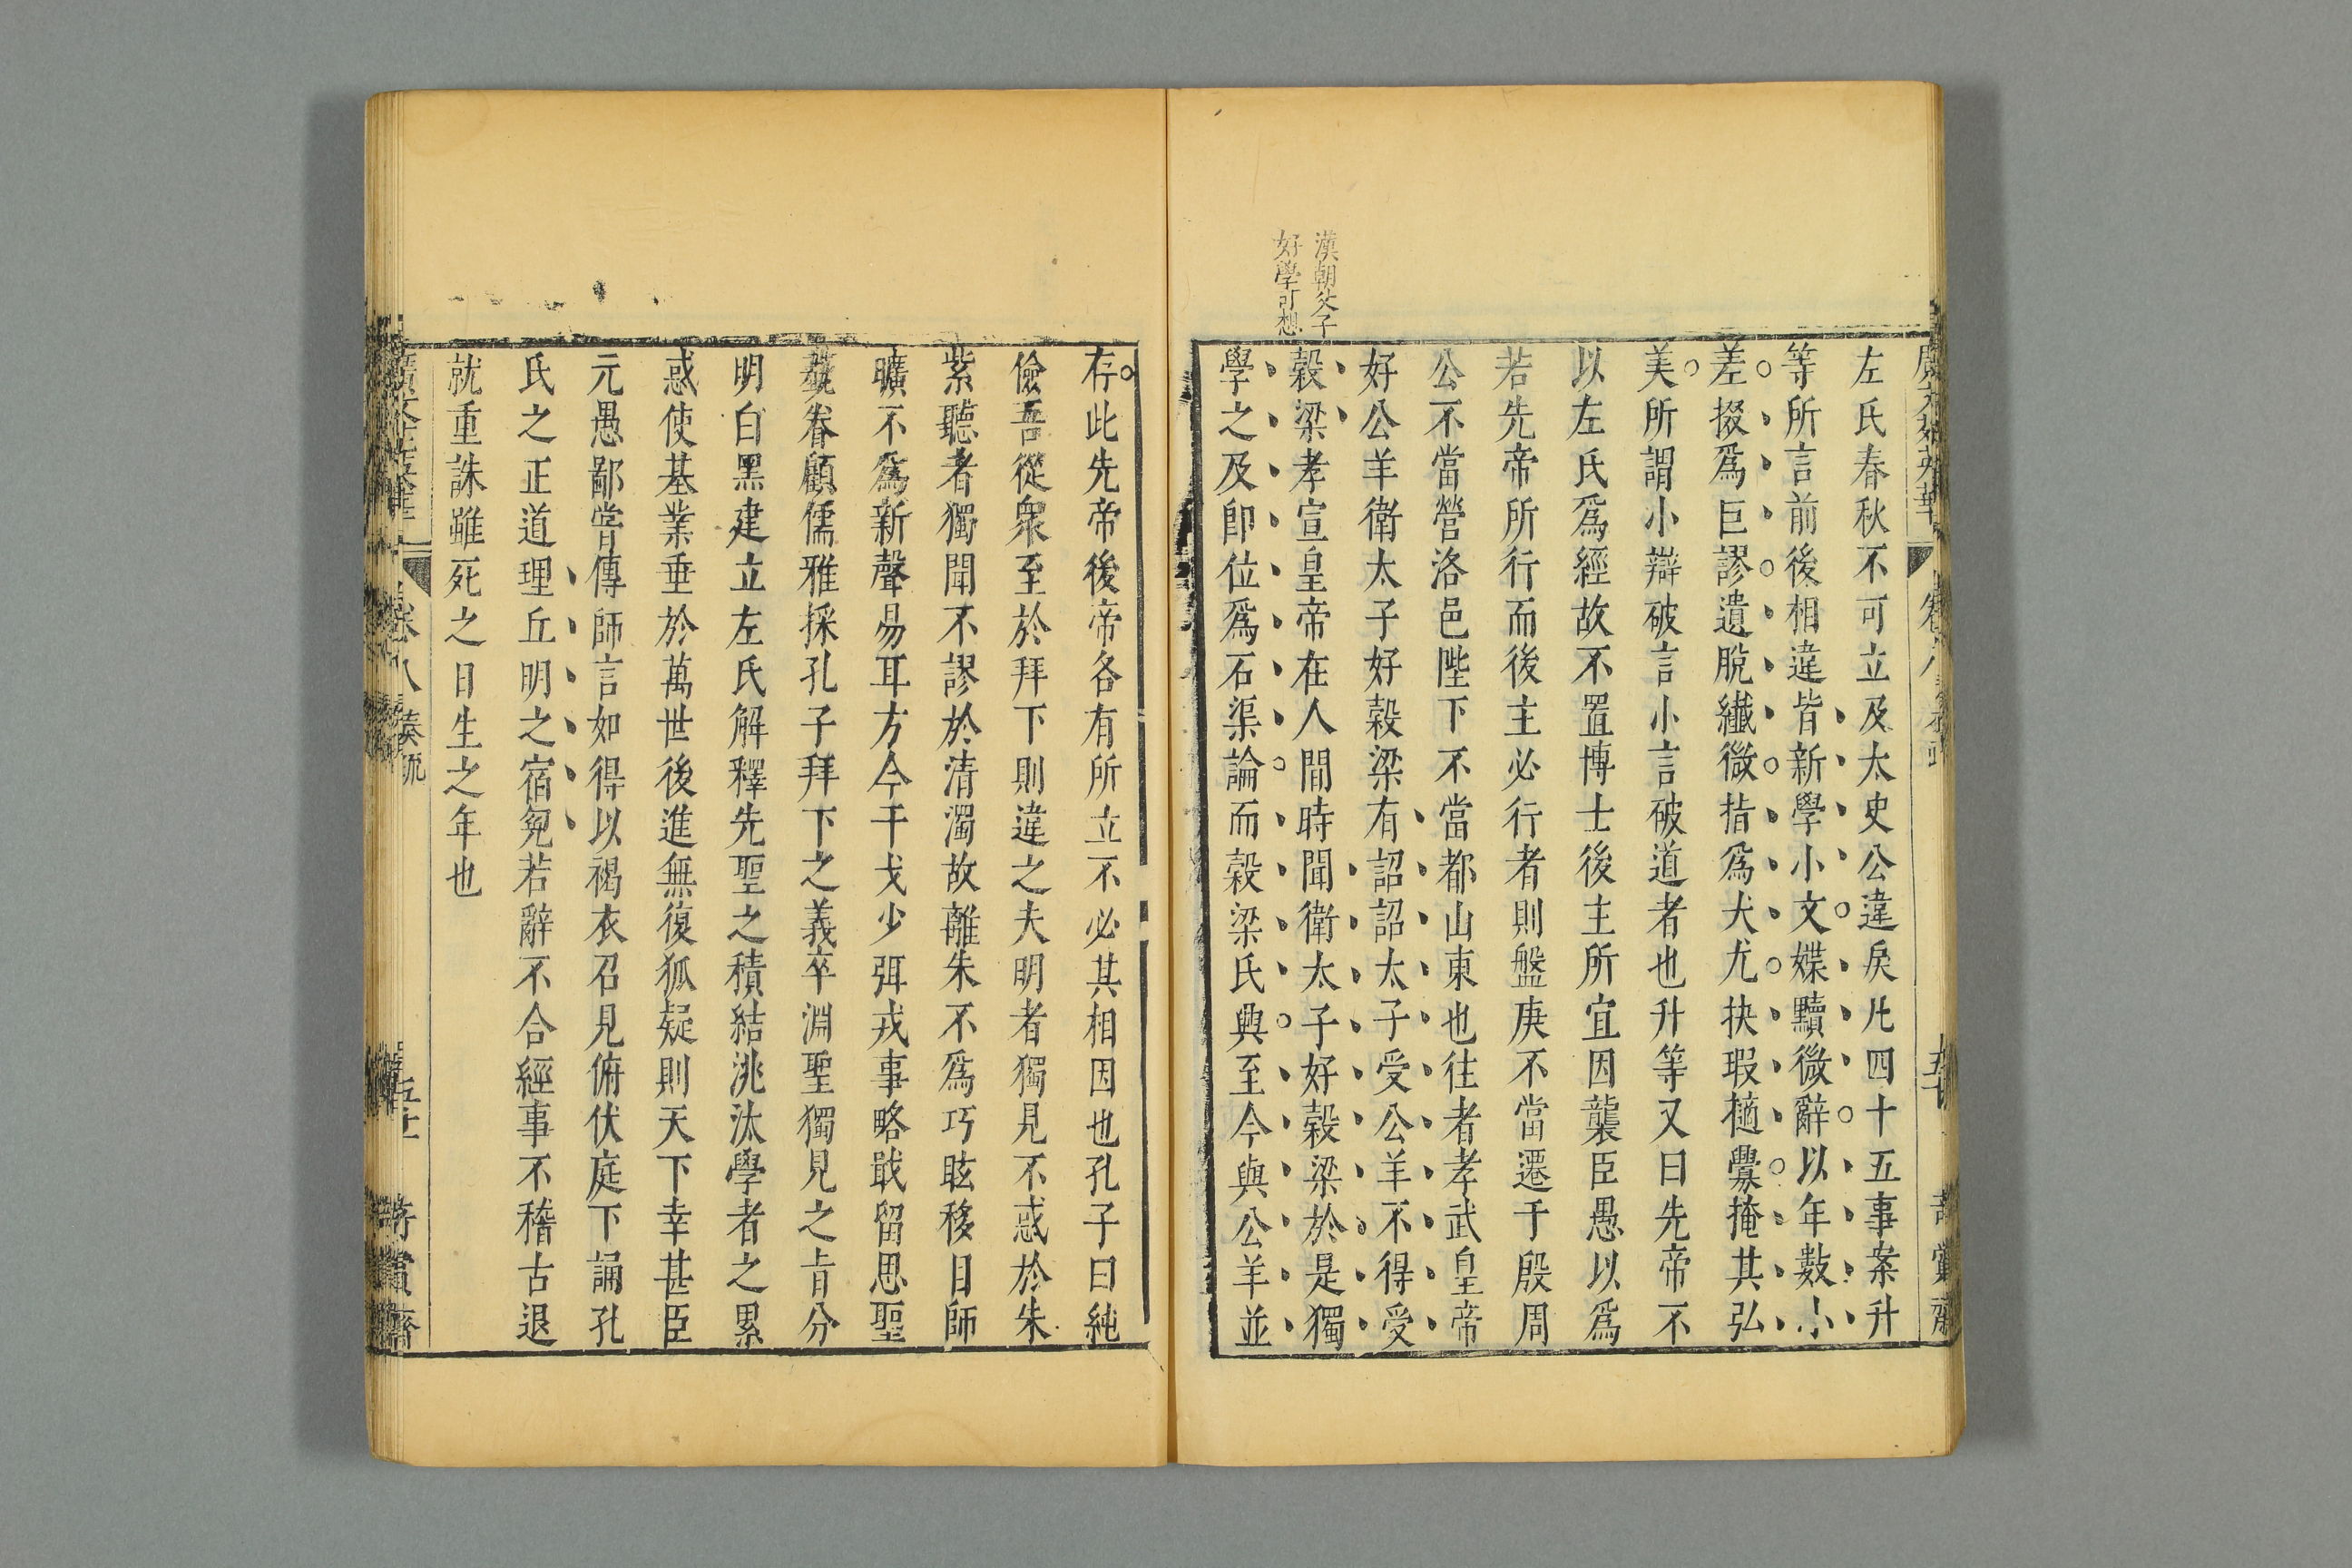 左氏春秋不可立及太史公違戾凡四十五事案升
等所言前後相違皆新學小文媟黷微辭以年數小
差掇爲巨謬遺脫纖微指爲大尤抉瑕擿釁掩其弘
美所謂小辯破言小言破道者也升等又曰先帝不
以左氏爲經故不置博士後主所宜因襲臣愚以爲
若先帝所行而後主必行者則盤庚不當遷于殷周
公不當營洛邑陛下不當都山東也往者孝武皇帝
好公羊衛太子好穀梁有詔詔太子受公羊不得受
漢朝父子
好學可想
穀梁孝宣皇帝在人間時聞衛太子好穀梁於是獨
學之及卽位爲石渠論而穀梁氏興至今與公羊並
存此先帝後帝各有所立不必其相因也孔子曰純
儉吾從衆至於拜下則違之夫明者獨見不惑於朱
紫聽者獨聞不謬於清濁故離朱不爲巧眩移目師
曠不爲新聲易耳方今干戈少弭戎事略戢留思聖
藝眷顧儒雅採孔子拜下之義卒淵聖獨見之旨分
明白黑建立左氏解釋先聖之積結洮汰學者之累
惑使基業垂於萬世後進無復狐疑則天下幸甚臣
元愚鄙嘗傳師言如得以褐衣召見俯伏庭下誦孔
氏之正道理丘明之宿冤若辭不合經事不稽古退
就重誅雖死之日生之年也
卷八 奏疏